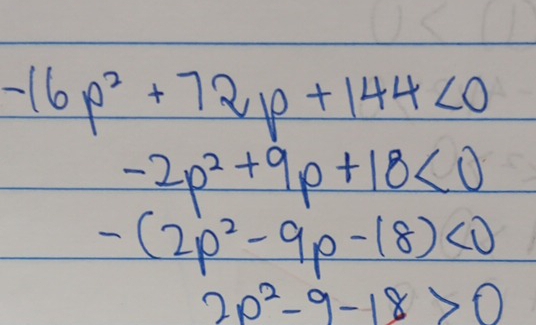 -16p² + 72p + 144 < 0
-2p² + 9p + 18 < 0
-(2p² - 9p - 18) < 0
2p² - 9 - 18 > 0